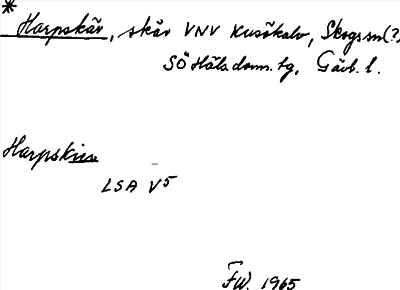 *
Harpskär, skär VNV Kusökalv, Skogsm(?)
SÖ Häls. doms. tg, Gävb. l.
Harpskär
LSA V5
FW. 1965